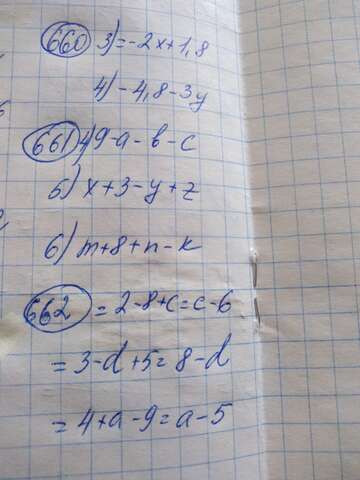 660 3) = -2x+1,8
4) -4,8-3y
661 4) 9-a-b-c
5) x+3-y+z
6) m+8+n-k
662 = 2-8+c=c-6
= 3-d+5=8-d
= 4+a-9=a-5